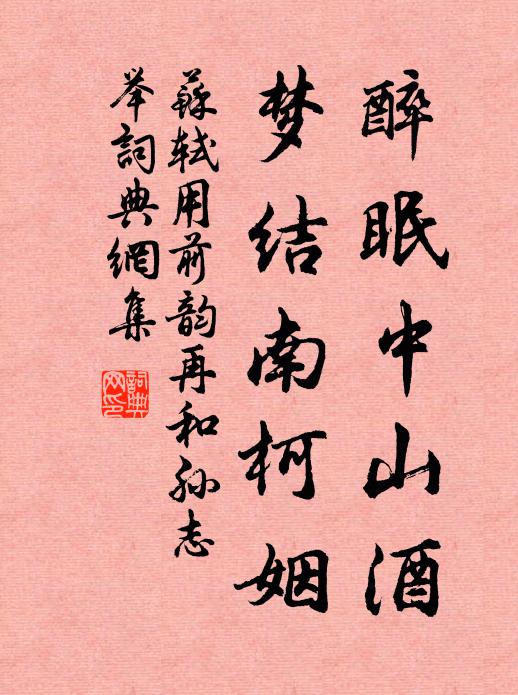 醉眠中山酒
梦结南柯姻
蘇軾用前韵再和孙志
举詞典網集
詞典
网印